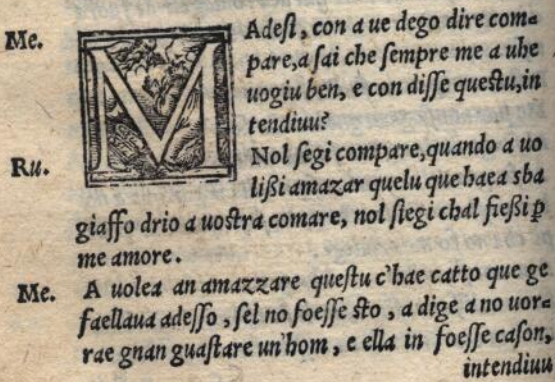 Me. MAdeſi, con a ue dego dire com=
pare, a ſai che ſempre me a uhe
uogiu ben, e con diſſe queſtu, in
tendiuu?
Ru. Nol ſegi compare, quando a uo
liſsi amazar quelu que haea sba
giaffo drio a uoſtra comare, nol ſiegi chal fieſsi ꝑ
me amore.
Me. A uolea an amazzare queſtu c'hae catto que ge
faellaua adeſſo, ſel no foeſſe ſto, a dige a no uor=
rae gnan guaſtare un'hom, e ella in foeſſe caſon,
intendiuu